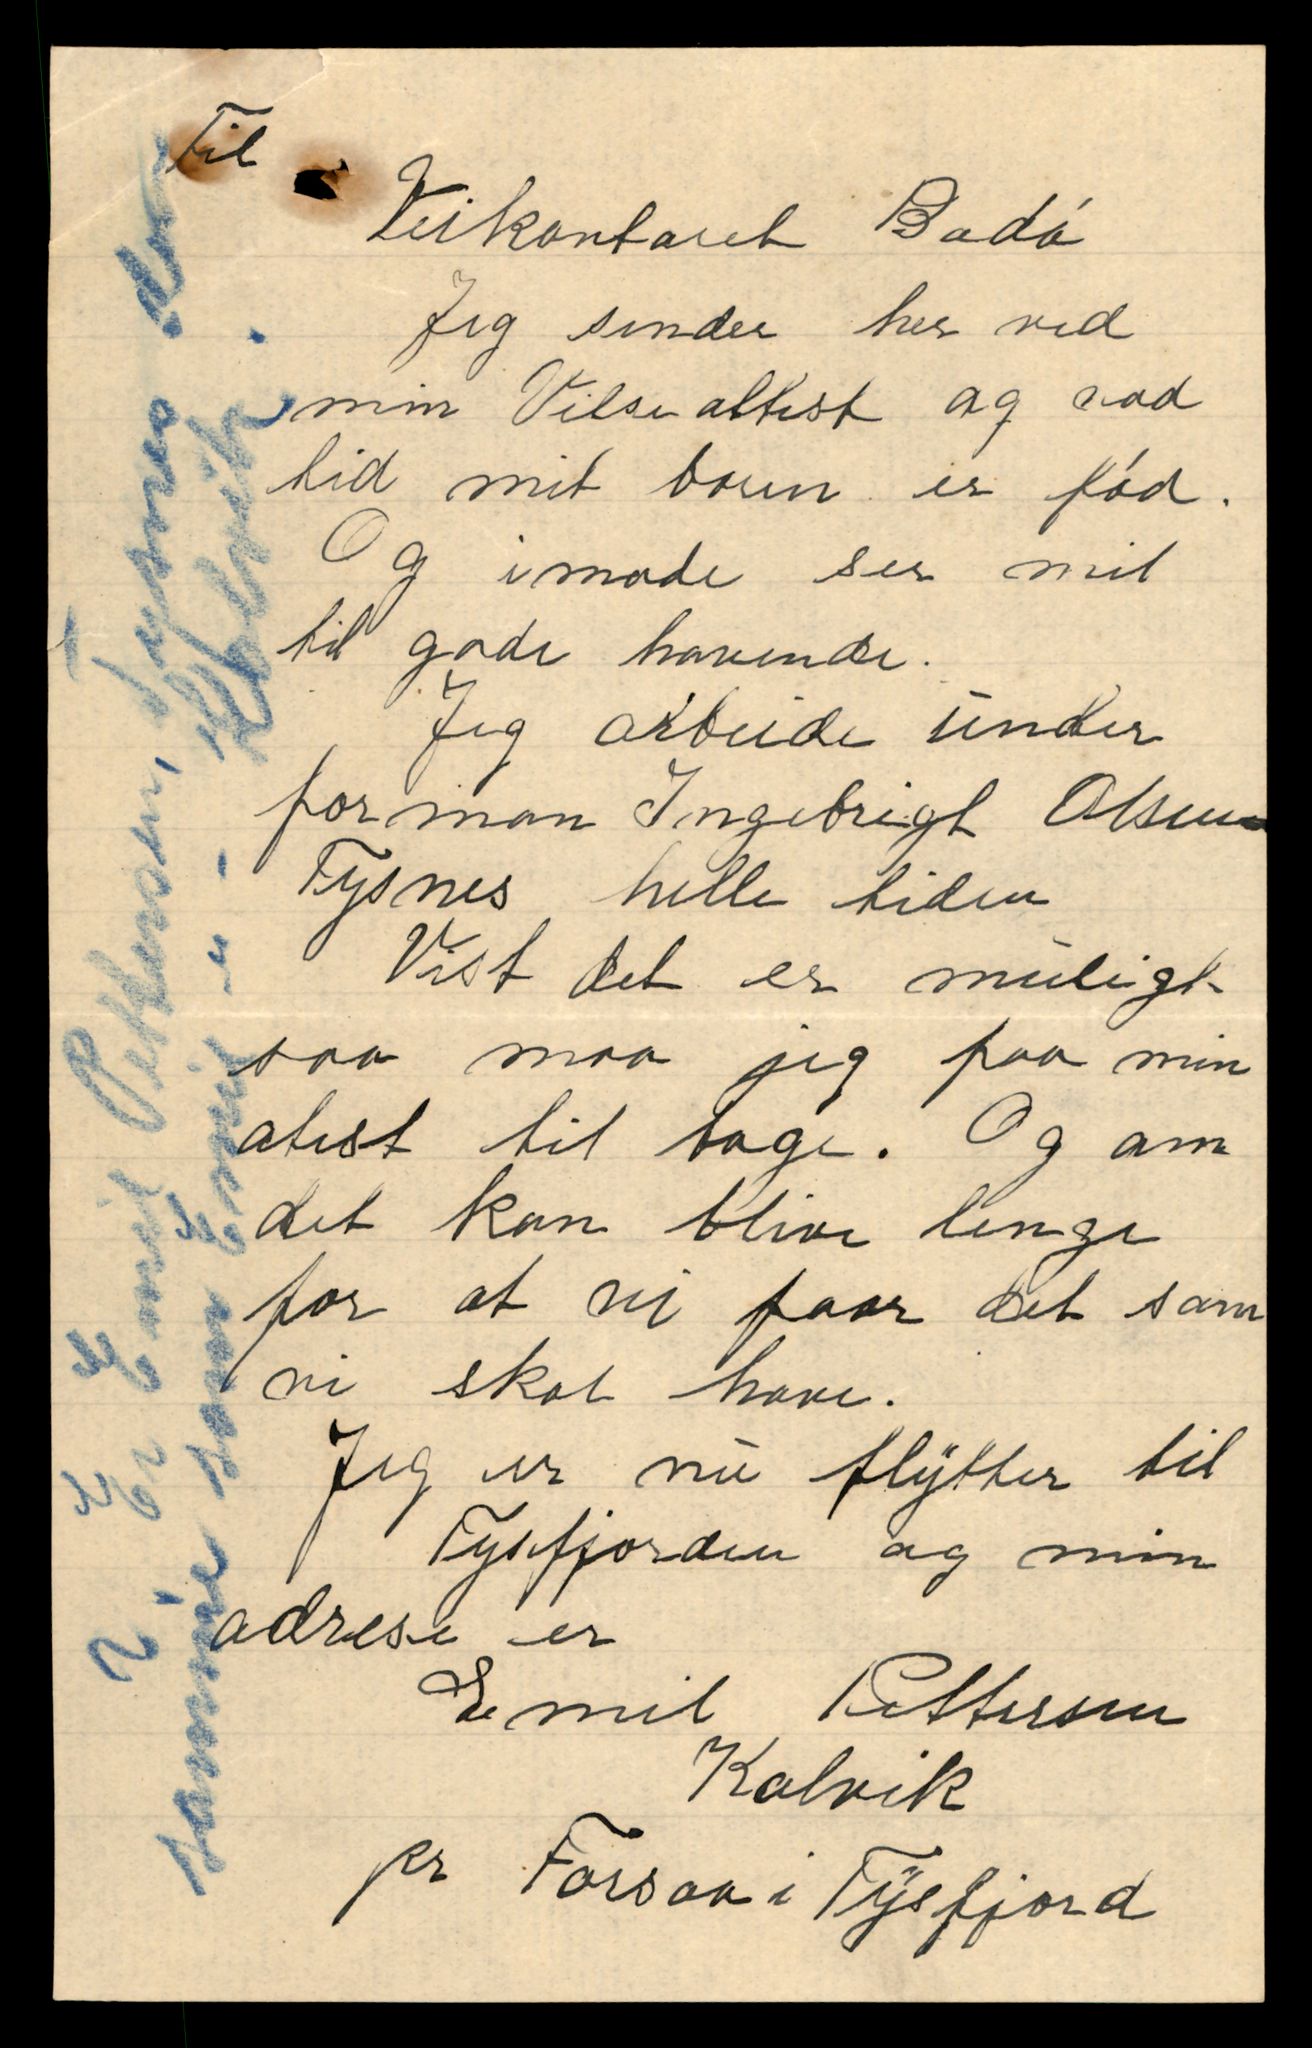 Til
Veikontoret Bodó
Jeg sender her ved
min Vilse attest og vad
tid mit boren er fód.
Og imode ser mit
til gode havende.
Jeg arbeide under
forman Ingebrigt Olsen
Tysnes helle tiden
Vist det er muligt
saa maa jeg faa min
atest til bage. Og om
det kan blive lenge
for at vi faar det som
vi skal have.
Jeg er nu flytter til
Tysfjorden og min
adrese er
Emil Pettersen
Kalvik
pr Forsaa i Tysfjord
? Er Emil Pettersen, Tysnes den
samme som Emil - " - Kalvik.